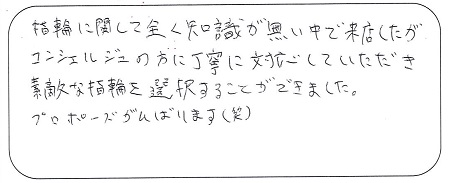 指輪に関して全く知識が無い中で来店したが
コンシェルジュの方に丁寧に対応していただき
素敵な指輪を選択することができました。
プロポーズがんばります(笑)